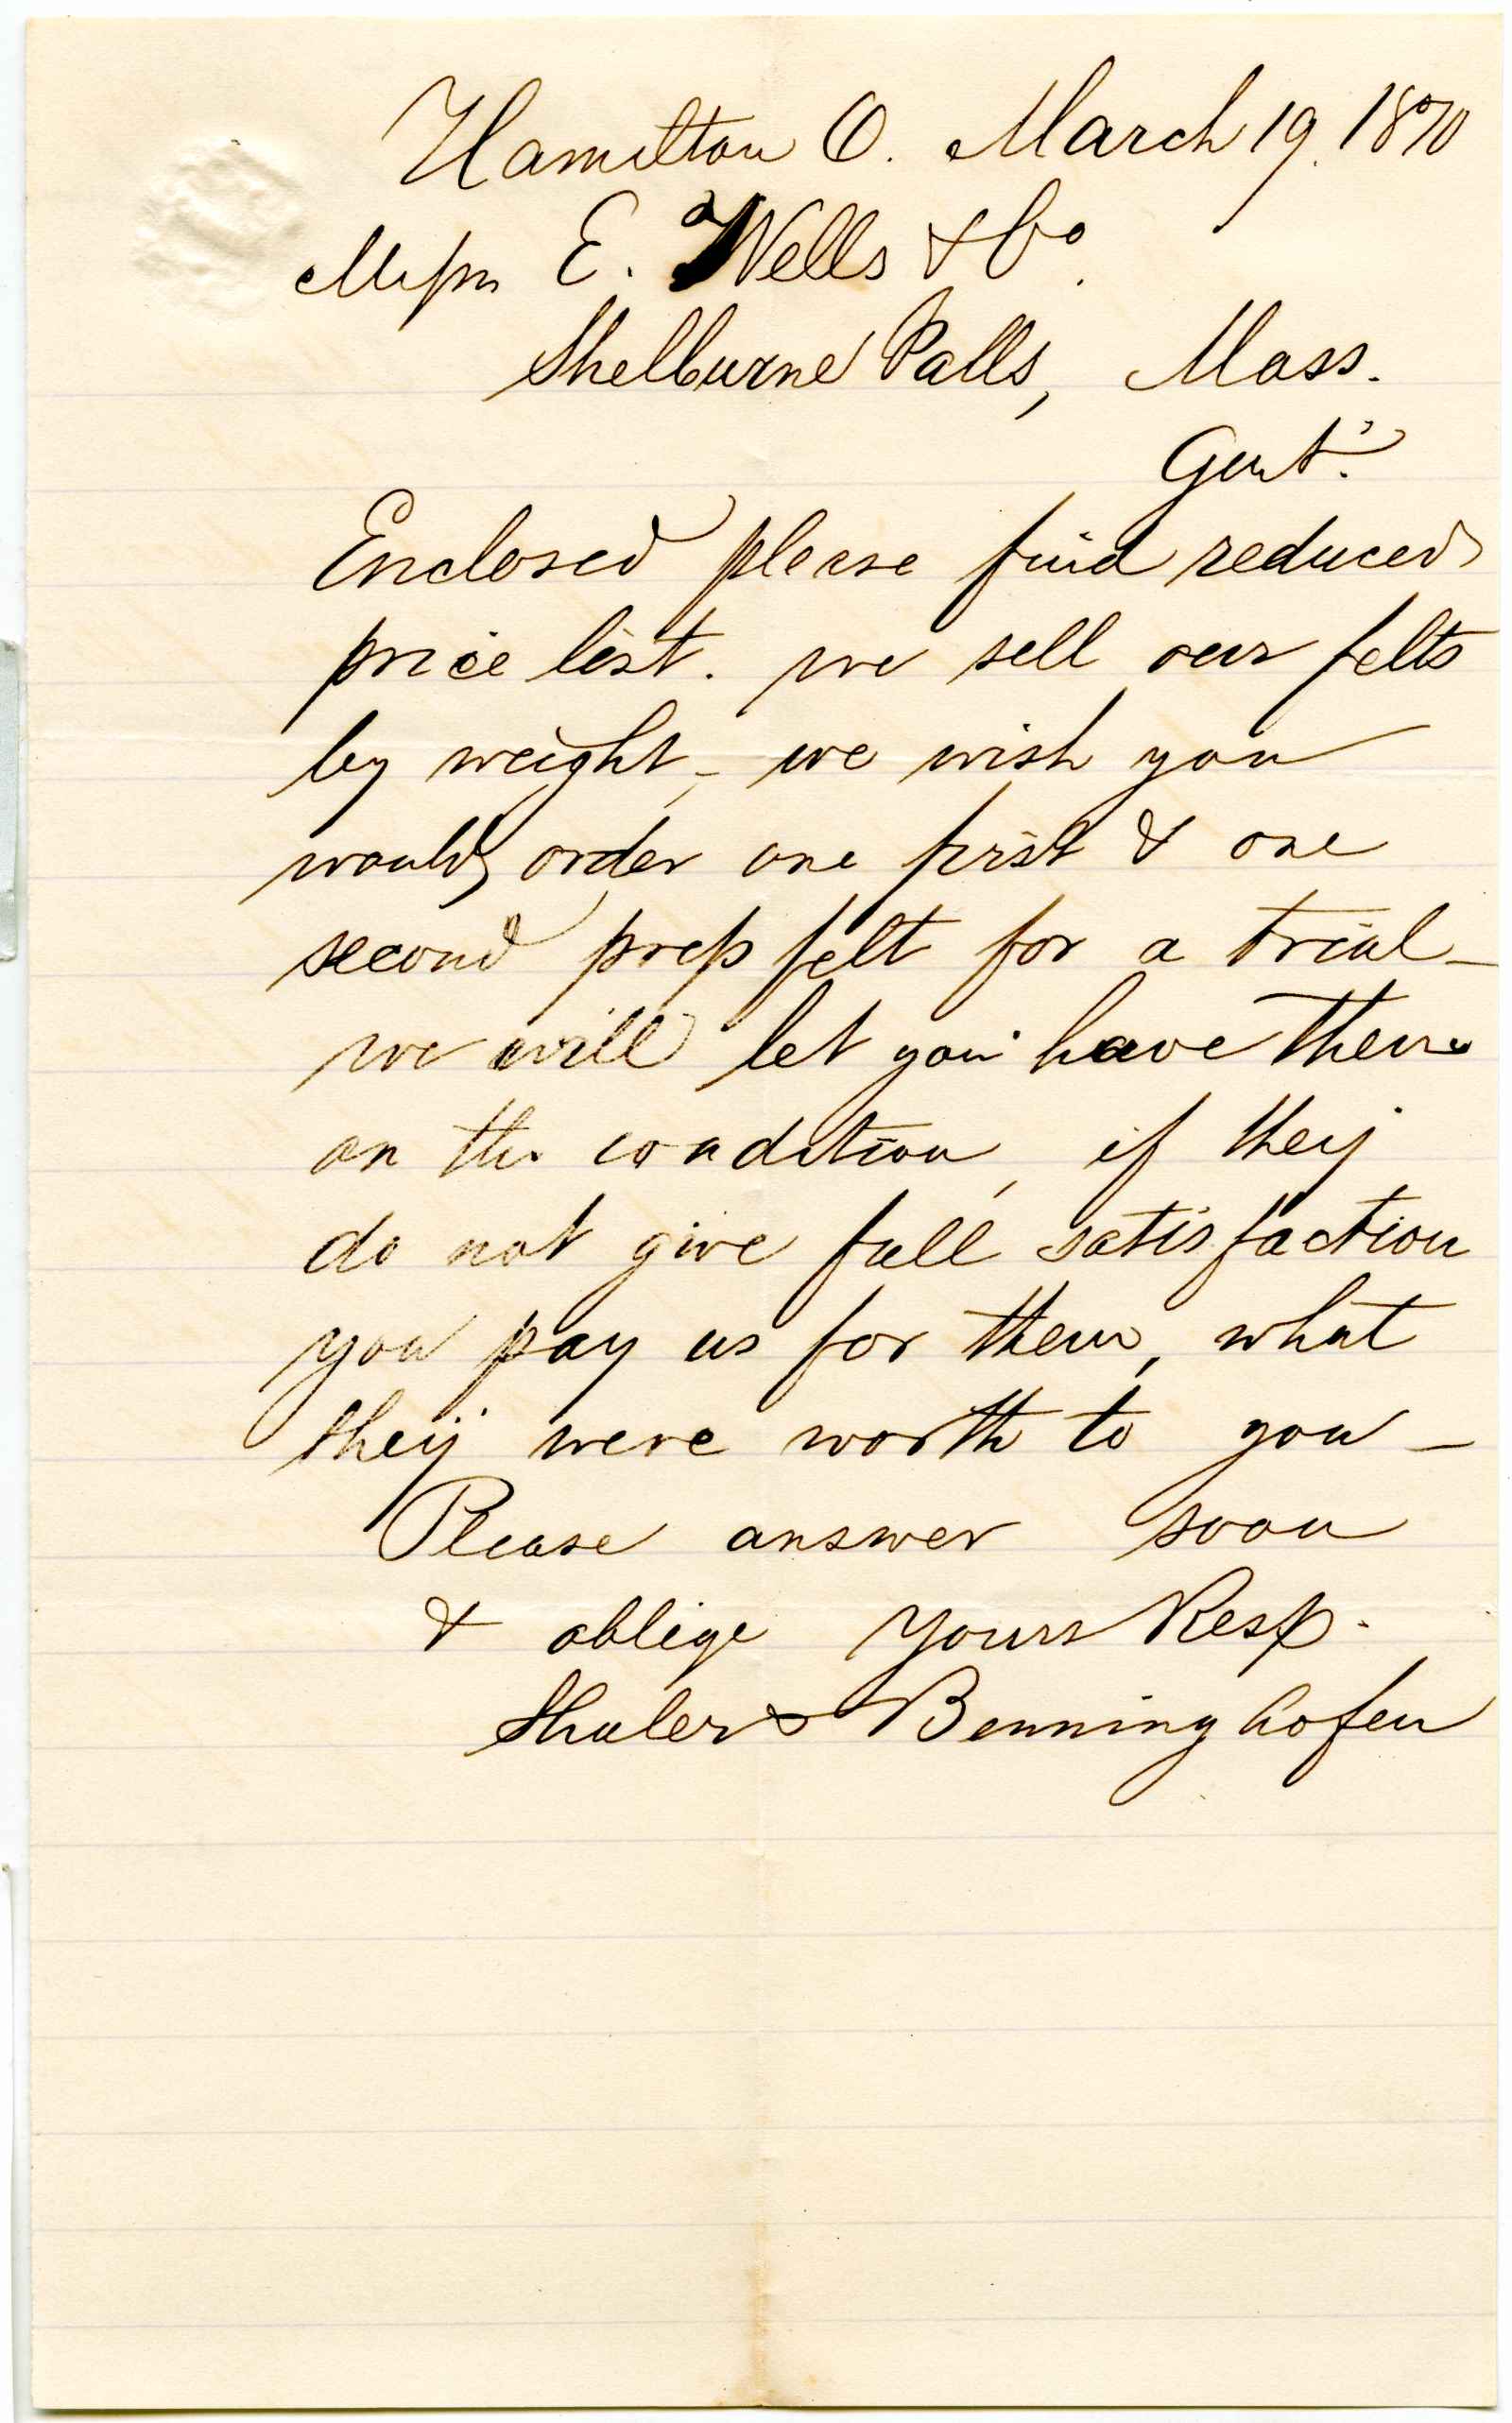 Hamilton O. March 19. 1870
Messrs E. Wells & Co.
Shelburne Falls, Mass.
Gent's.
Enclosed please find reduced
price list. we sell our felts
by weight, - we wish you
would, order one first & one
second press felt for a trial -
we will let you have them
on the condition, if they
do not give full satisfaction
you pay us for them, what
they were worth to you -
Please answer soon
& oblige Yours Resp.
Shuler & Benninghofen